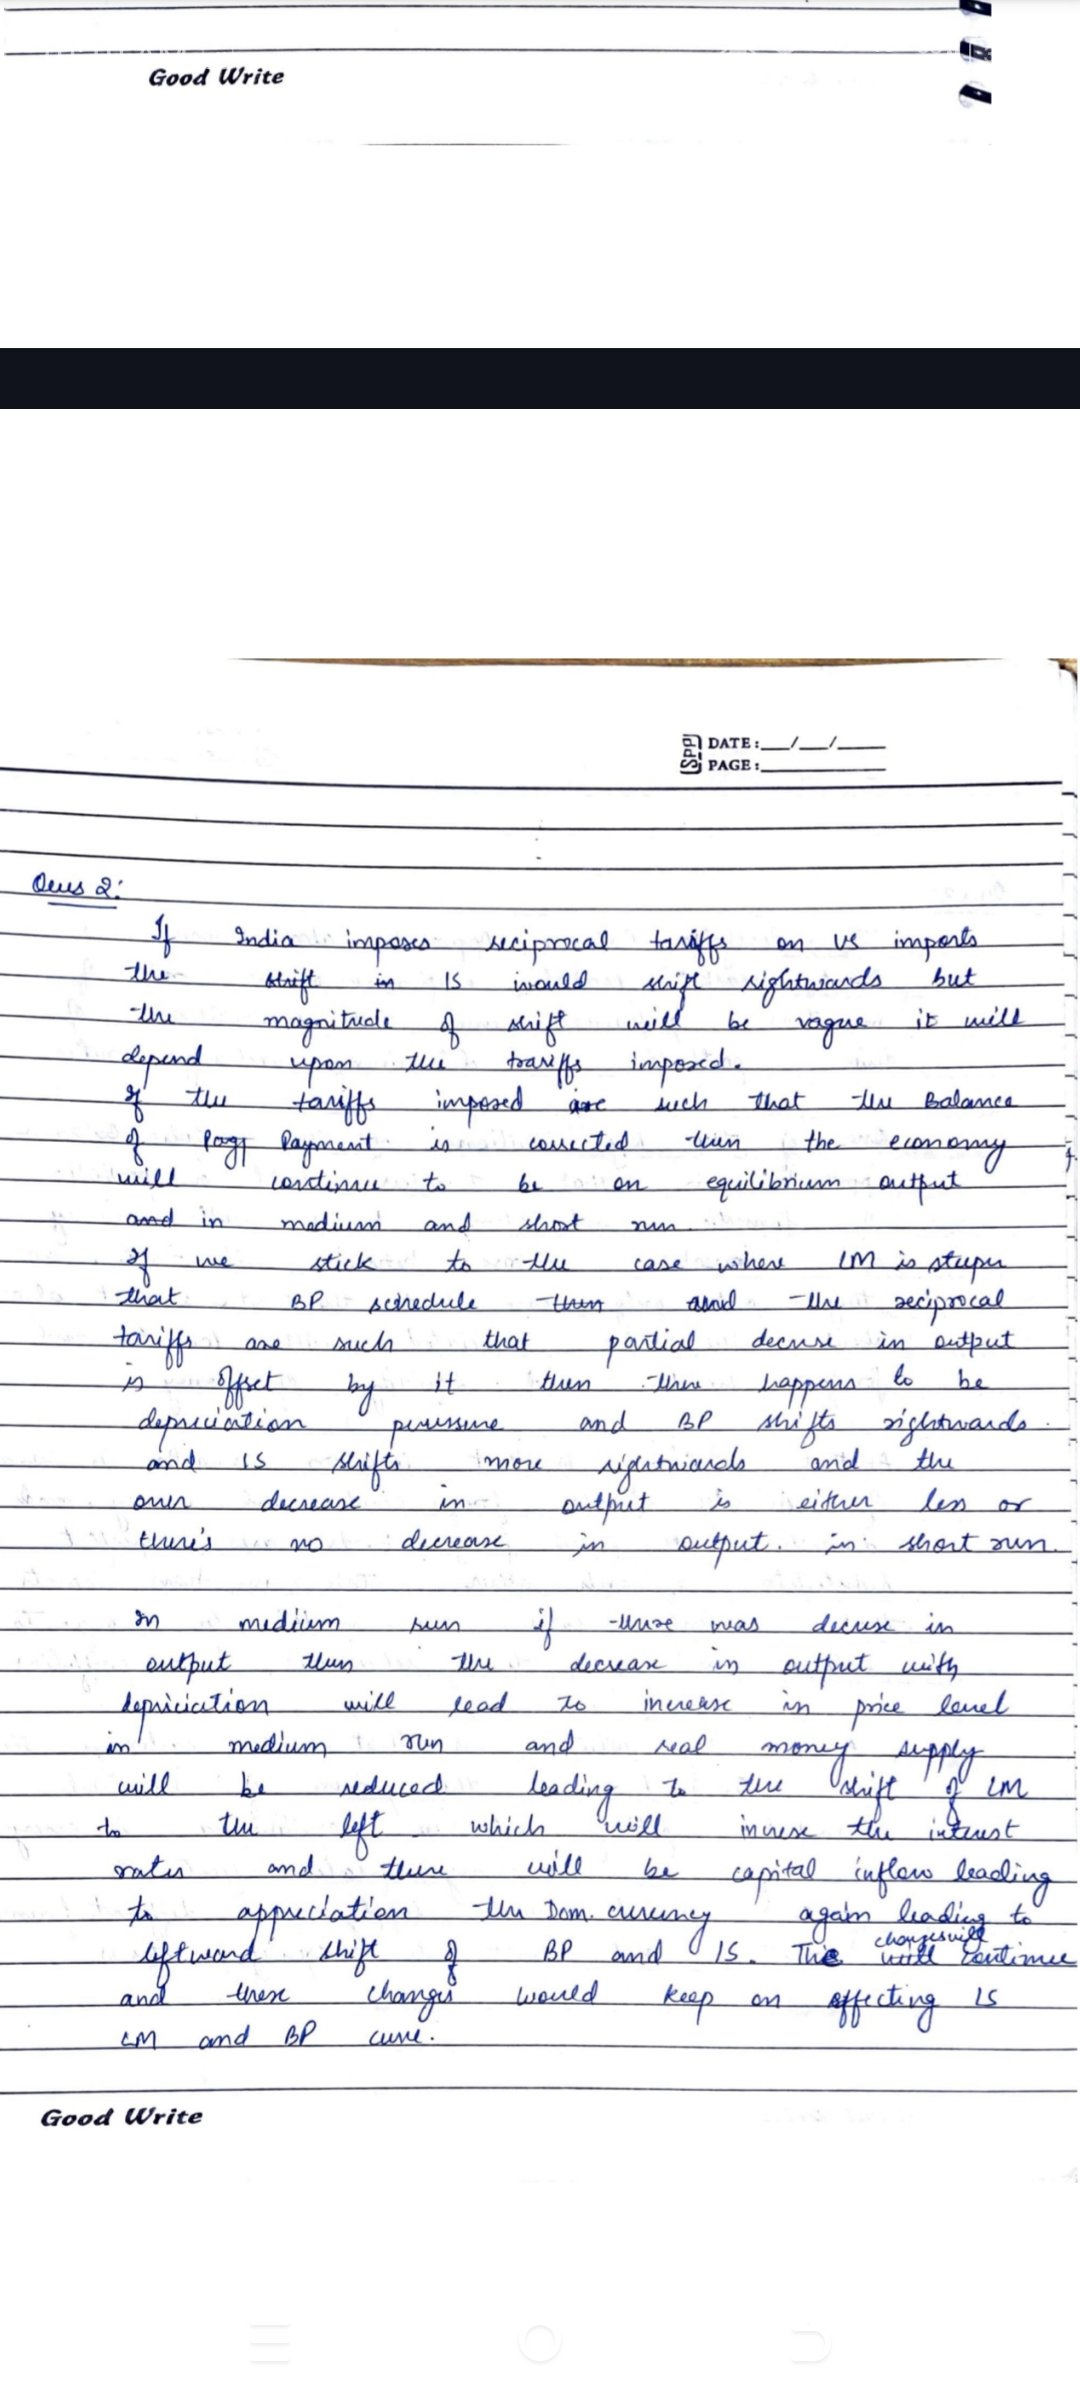 Good Write
SPP DATE:__/__/____
PAGE:
Ques 2:
If India imposes reciprocal tariffs on US imports
the shift in IS would shift rightwards but
the magnitude of shift will be vague it will
depend upon the tariffs imposed.
If the tariffs imposed are such that the Balance
of Payment is corrected then the economy
will continue to be on equilibrium output
and in medium and short run.
If we stick to the case where LM is steeper
that BP schedule then and the reciprocal
tariffs are such that partial decrese in output
is offset by it then there happens to be
depreciation pressure and BP shifts rightwards.
and IS shifts more rightwards and the
over decrease in output is either less or
there's no decrease in output. in short run.
In medium run if there was decrese in
output then the decrease in output with
depriciation will lead to increase in price level
in medium run and real money supply
will be reduced leading to the shift of LM
to the left which will increse the interest
rates and there will be capital inflow leading
to appreciation the Dom. currency again leading to
leftward shift of BP and IS. The changes will continue
and these changes would keep on affecting IS
LM and BP curve.
Good Write